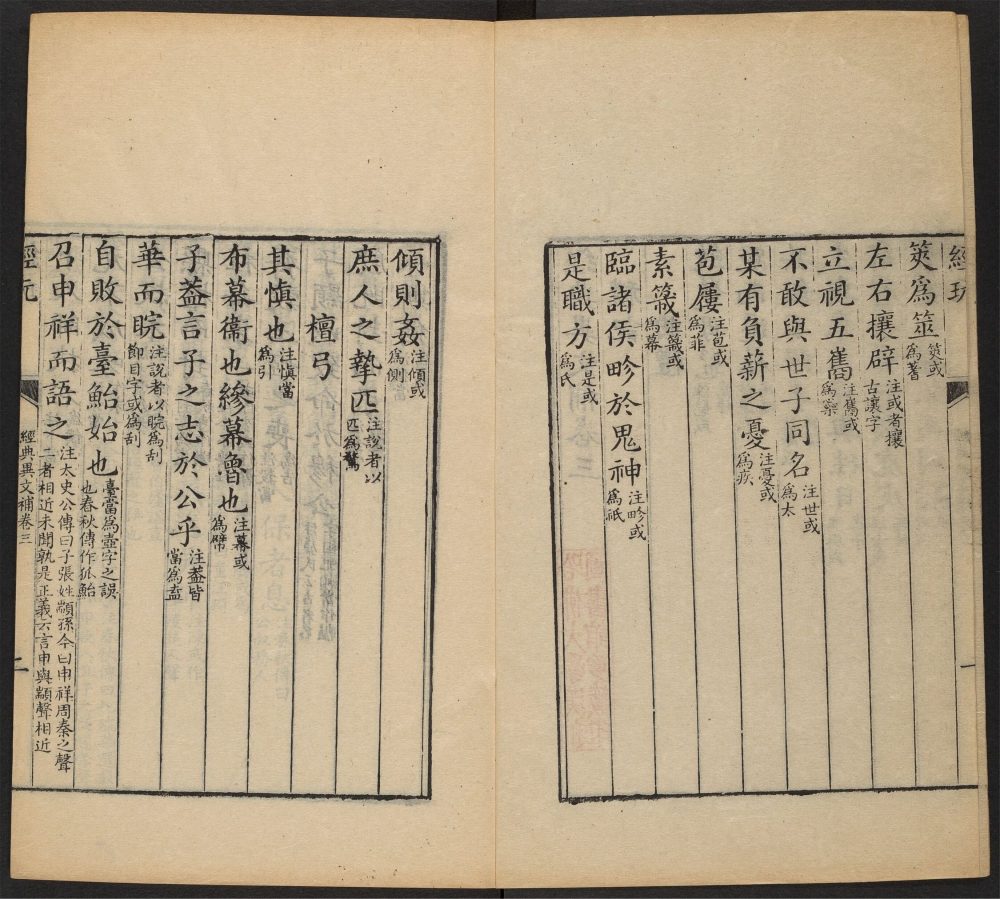 經玩
筴爲筮 筴或爲蓍
左右攘辟 注或者攘古讓字
立視五巂 注巂或爲蘂
不敢與世子同名 注世或爲太
某有負薪之憂 注憂或爲疾
苞屨 注苞或爲菲
素簚 注簚或爲幕
臨諸侯畛於鬼神 注畛或爲祇
是職方 注是或爲氏
一
傾則姦 注傾或爲側
庶人之摯匹 注說者以匹爲鶩
檀弓
其慎也 注慎當爲引
布幕衞也縿幕魯也 注幕或爲幦
子蓋言子之志於公乎 注蓋皆當爲盍
華而睆 注說者以睆爲刮節目字或爲刮
自敗於臺鮐始也 臺當爲壺字之誤也春秋傳作狐鮐
召申祥而語之 注太史公傳曰子張姓顓孫今曰申祥周秦之聲二者相近未聞孰是正義云言申與顓聲相近
經玩
經典異文補卷三
二